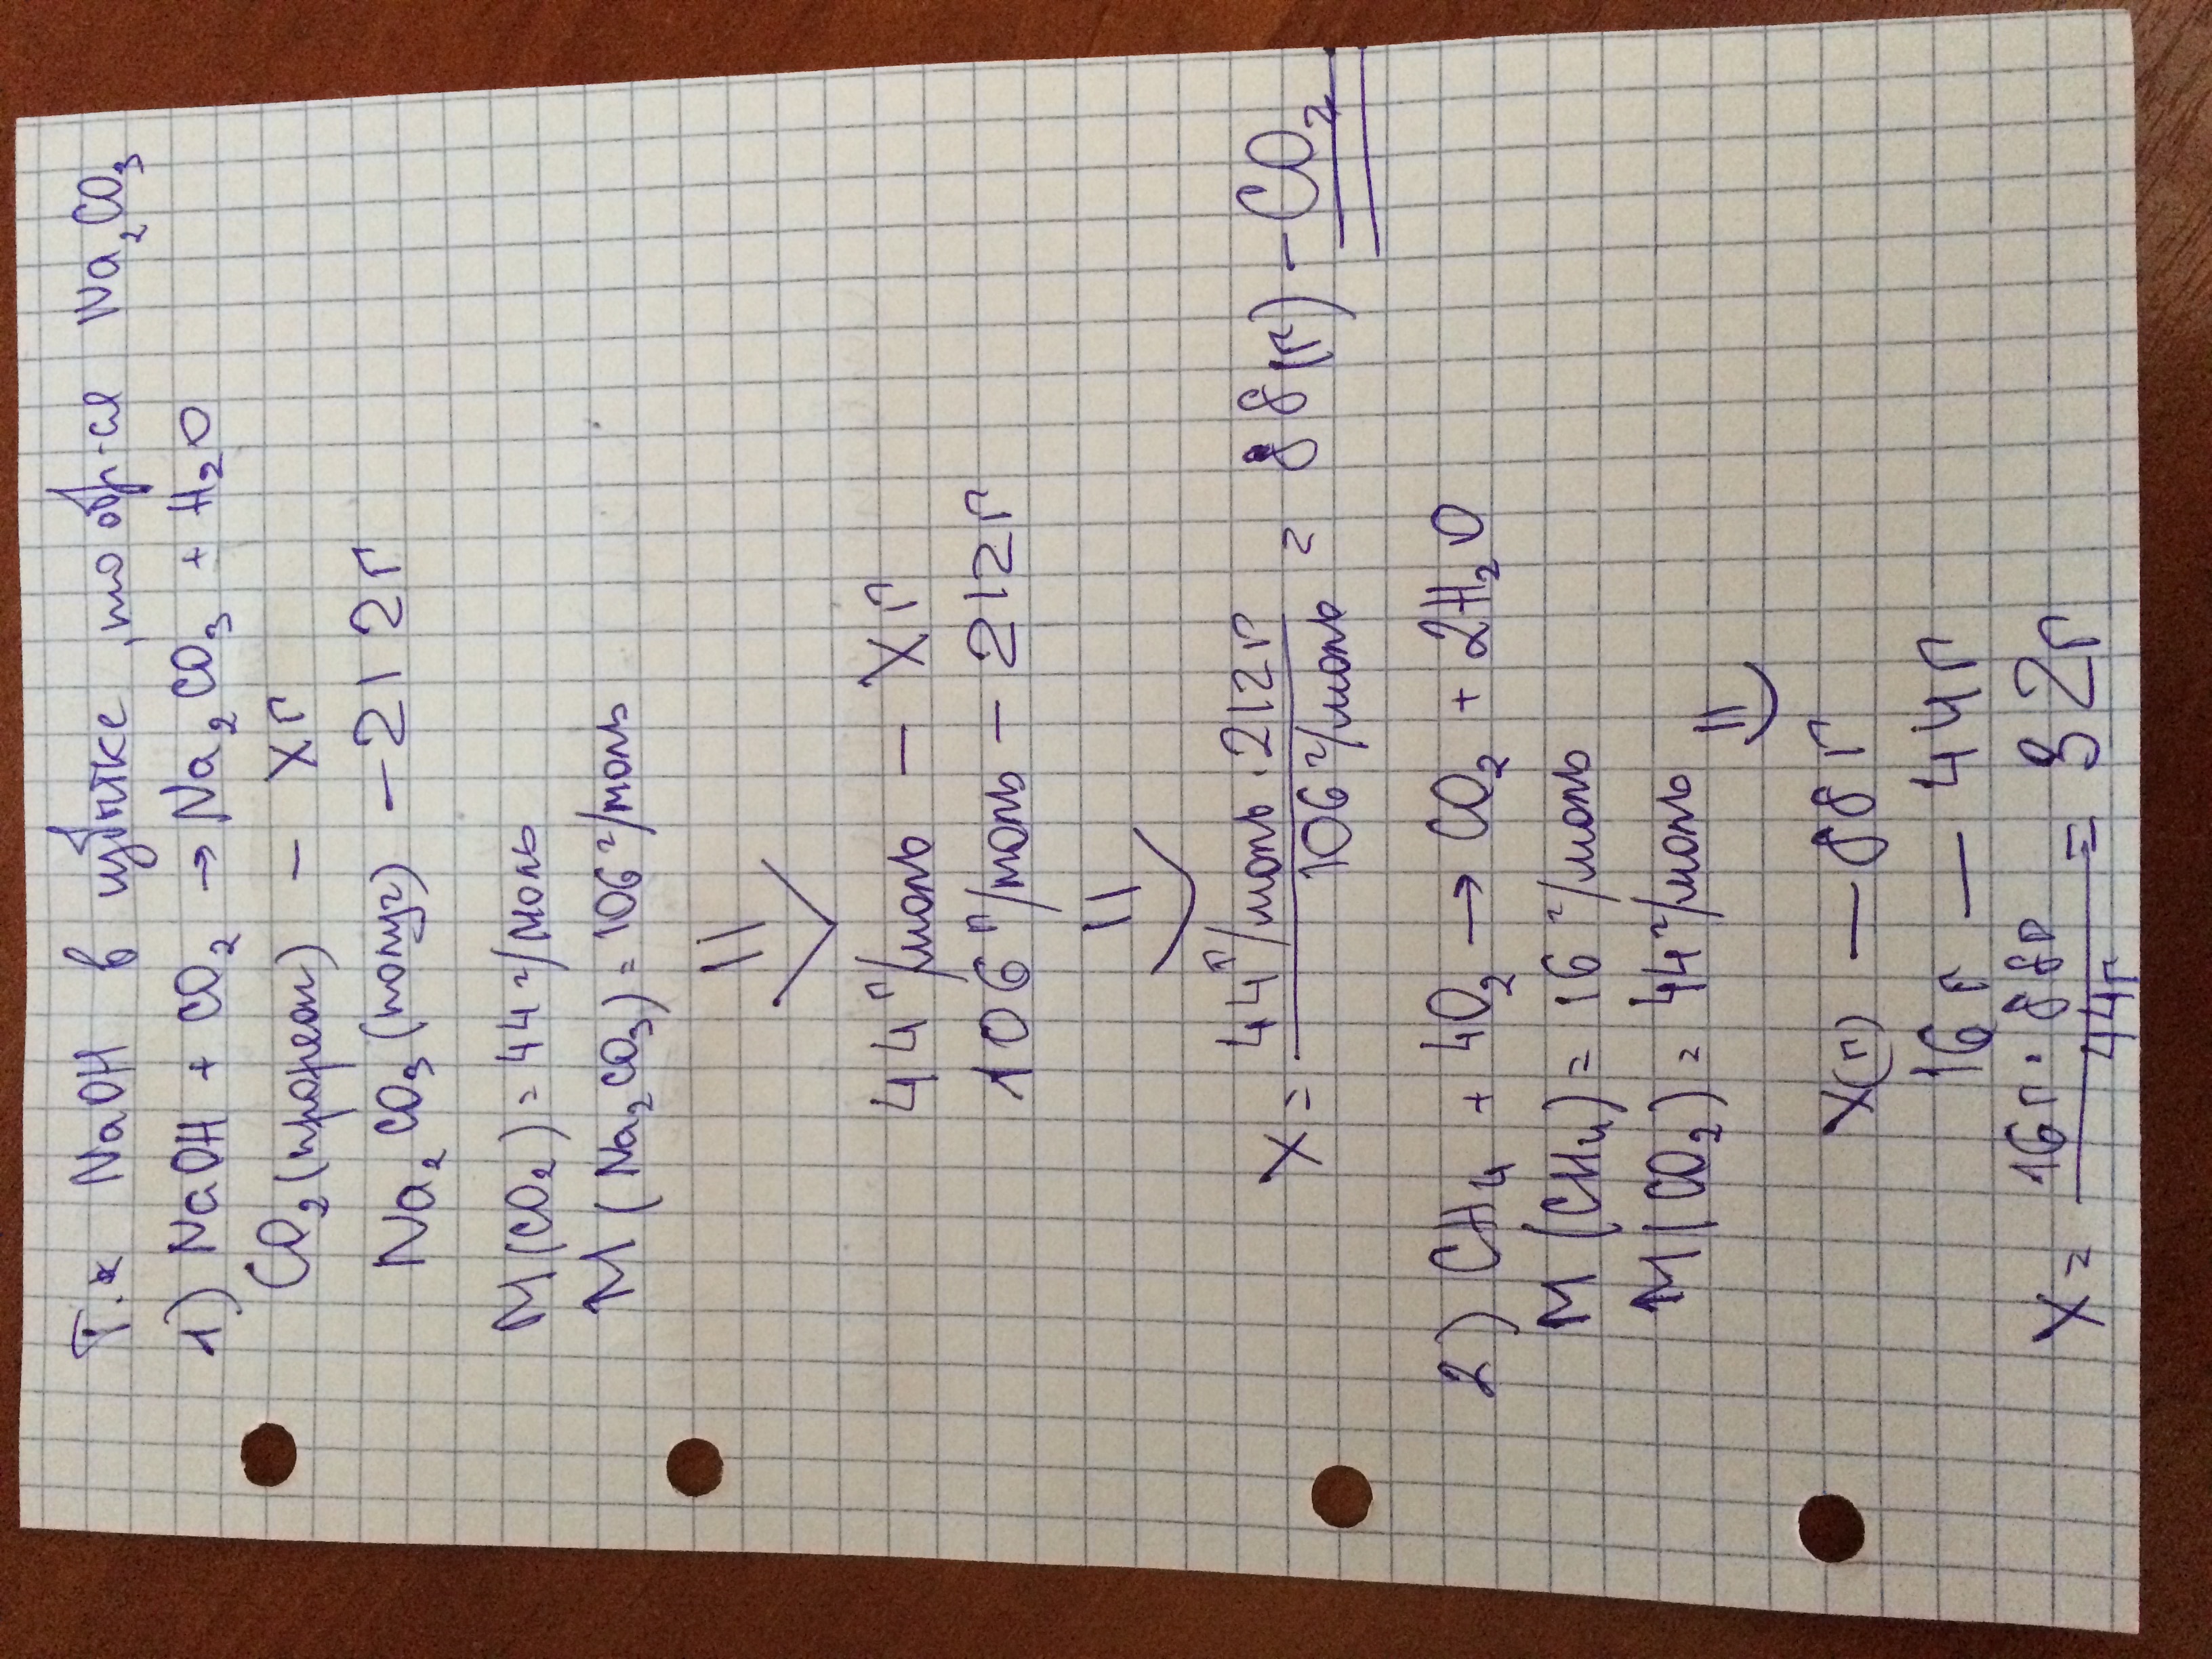 Т.к NaOH в избытке, то обр-ся Na₂CO₃
1) NaOH + CO₂ → Na₂CO₃ + H₂O
CO₂ (прореаг) – Xг
Na₂CO₃ (получ) – 212г
M(CO₂) = 44 г/моль
M(Na₂CO₃) = 106 г/моль
=>
44 г/моль – Xг
106 г/моль – 212г
=>
X = 44 г/моль · 212г / 106 г/моль = 88(г) – CO₂
2) CH₄ + 4O₂ → CO₂ + 2H₂O
M(CH₄) = 16 г/моль
M(CO₂) = 44 г/моль
=>
X(г) – 88г
16 г – 44г
X = 16г · 88г / 44г = 32г